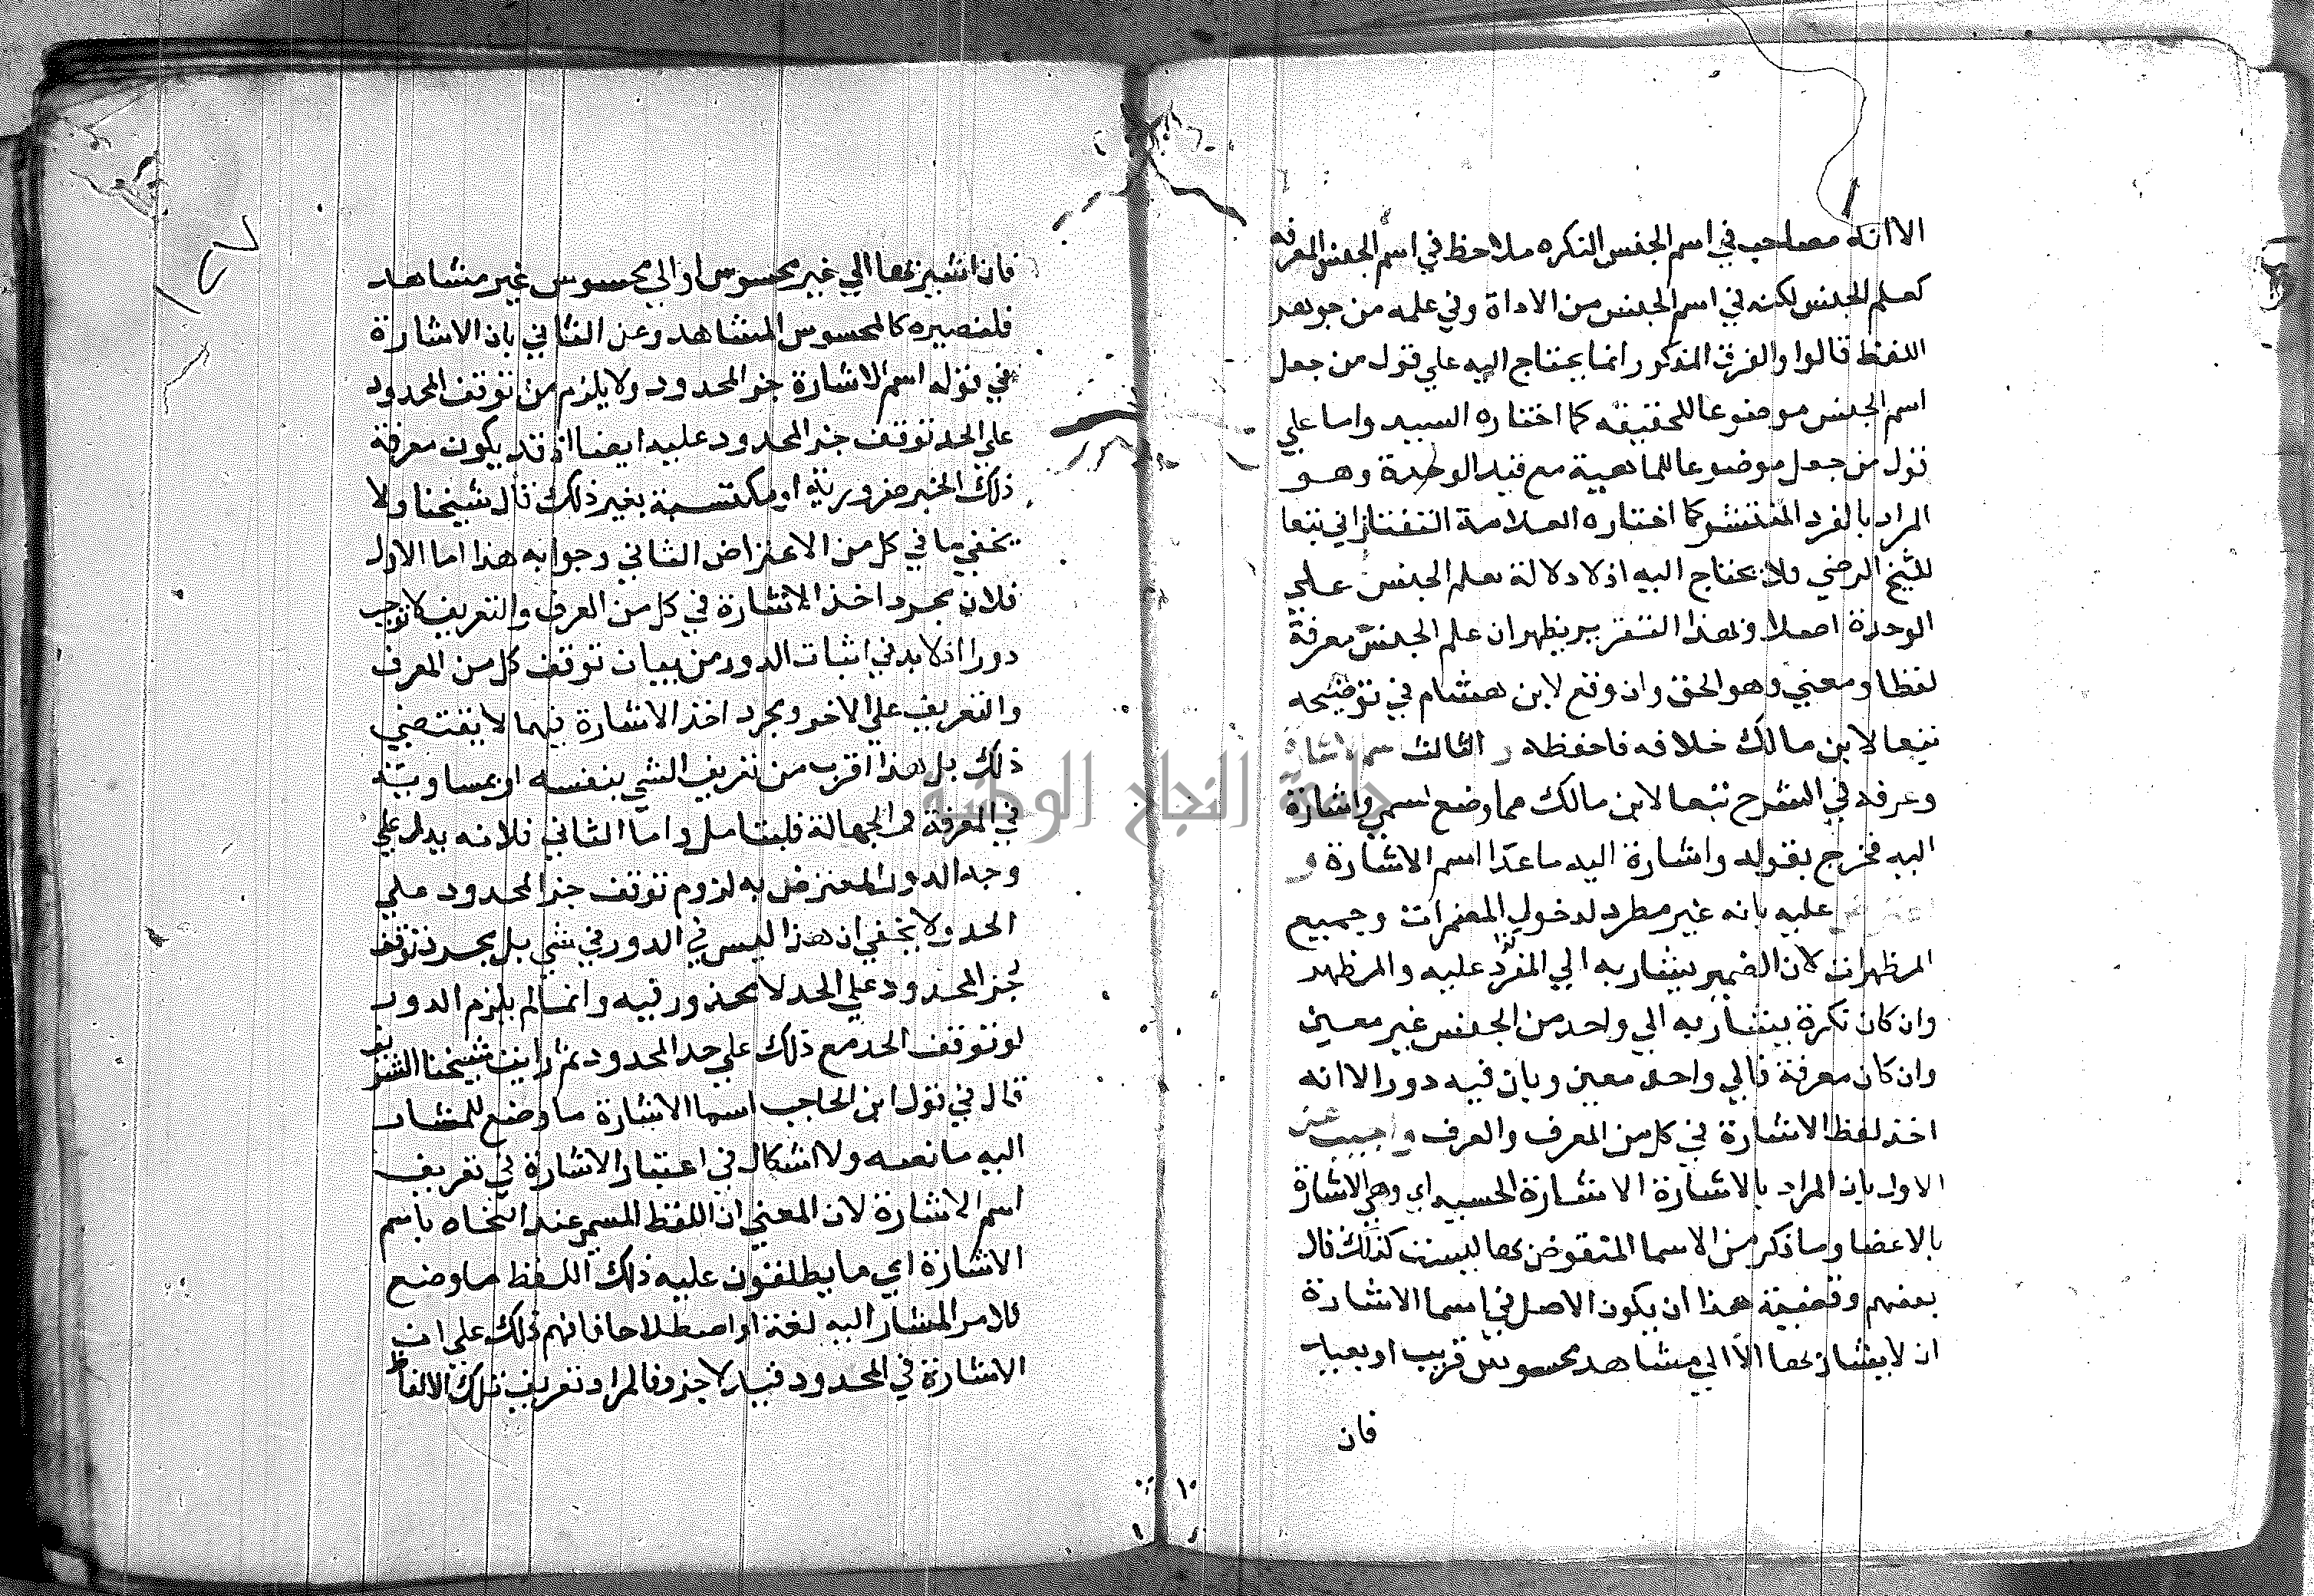 الا انه مصاحب في اسم الجنس النكره ملاحظ في اسم الجنس المعرفه
كعلم الجنس لكنه في اسم الجنس من الاداة وفي علمه من جوهر
اللفظ قالوا والفرق المذكور انما يحتاج اليه علي قول من جعل
اسم الجنس موضوعا للحقيقه كما اختاره السيد واما علي
قول من جعل موضوعا للماهية مع قيد الوحدة وهو
المراد بالفرد المنتشر كما اختاره العلامة التفتازاني تبعا
للشيخ الرضي فلا يحتاج اليه اذ لا دلالة لعلم الجنس علي
الوحدة اصلا وبهذا التقرير يظهر ان علم الجنس معرفة
لفظا ومعني وهو الحق وان وقع لابن هشام في توضيحه
تبعا لابن مالك خلافه فاحفظه و الثالث
وعرفه في الشرح تبعا لابن مالك مما وضع لمسمي واشارة
اليه فخرج بقوله واشارة اليه ما عدا اسم الاشارة و
عليه بانه غير مطرد لدخول المضمرات وجميع
المظهرات لان الضمير يشار به الي المفرد عليه والمظهر
وان كان نكرة يشار به الي واحد من الجنس غير معين
وان كان معرفة فالي واحد معين وبان فيه دورا لانه
اخذ لفظ الاشارة في كل من المعرف والعرف واجيب عن
الاول بان المراد بالاشارة الاشارة الحسيه اي وهي الاشارة
بالاعضا وما ذكر من الاسما المنقوض بها ليست كذلك قال
بعضهم وقضية هذا ان يكون الاصل في اسما الاشارة
ان لا يشار بها الا الي مشاهد محسوس قريب او بعيد
فان
فان اشير بها الي غير محسوس او الي محسوس غير مشاهد
فلتصييره كالمحسوس المشاهد وعن الثاني بان الاشارة
في قوله اسم الاشارة جز المحدود ولا يلزم من توقف المحدود
علي الحد توقف جز المحدود عليه ايضا اذ قد يكون معرفة
ذلك الخبر ضرورية او مكتسبة بغير ذلك قال شيخنا ولا
يخفي ما في كل من الاعتراض الثاني وجوابه هذا اما الاول
فلان مجرد اخذ الاشارة في كل من العرف والتعريف لا توجب
دورا اذ لا بد في اثبات الدور من بيان توقف كل من المعرف
والتعريف علي الاخر ومجرد اخذ الاشارة فيهما لا يقتضي
ذلك بل هذا اقرب من تعريف الشي بنفسه او بمساويه
في المعرفة والجهالة فليتامل واما الثاني فلانه يدل علي
وجه الدور المعترض به لزوم توقف جز المحدود علي
الحد ولا يخفي ان هذا ليس في الدور في شي بل مجرد توقف
جز المحدود علي الحد لا محذور فيه وانما لم يلزم الدور
لو توقف الحد مع ذلك علي حد المحدود ثم رايت شيخنا الشريف
قال في قول ابن الحاجب اسما الاشارة ما وضع للمشار
اليه ما نصه ولا اشكال في اعتبار الاشارة في تعريف
اسم الاشارة لان المعني ان اللفظ المسمي عند النحاه باسم
الاشارة اي ما يطلقون عليه ذلك اللفظ ما وضع
لامر المشار اليه لغة او اصطلاحا فافهم ذلك علي ان
الاشارة في المحدود قيد لا جزو فالمراد تعريف تلك الالفاظ
١٠
جامعة النجاح الوطنية